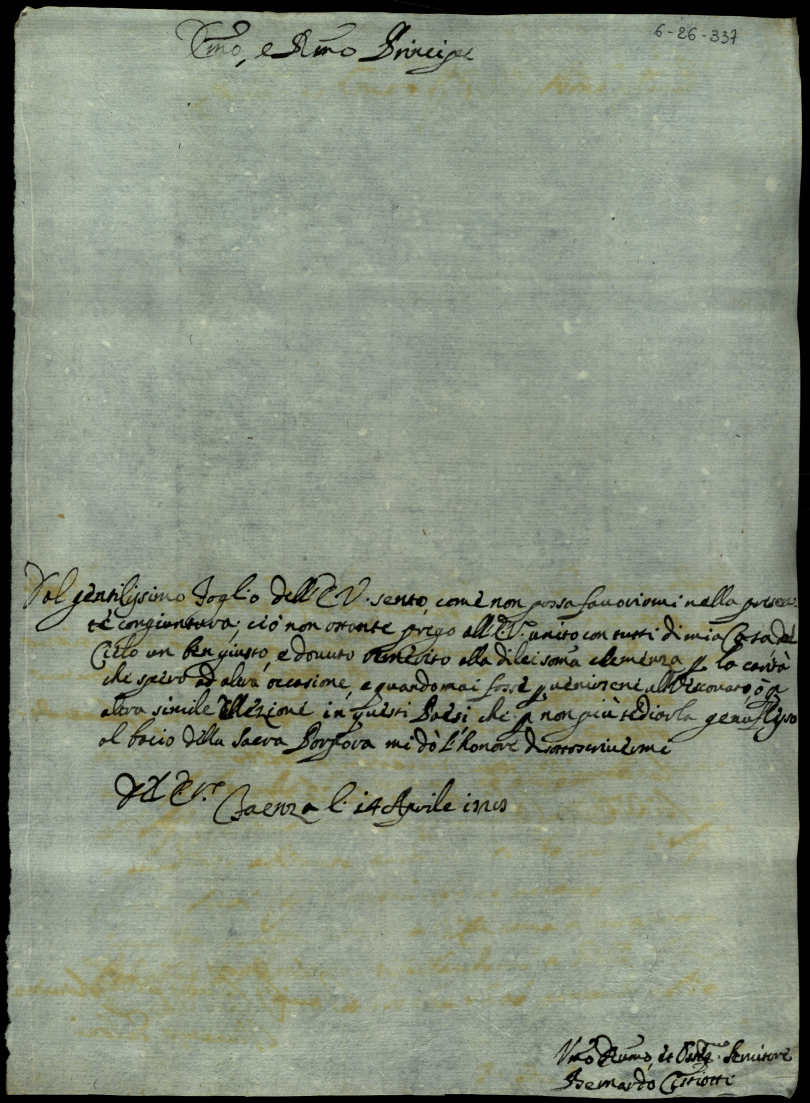 6-26-337
Emo, e Rmo Principe
Dal gentilissimo Foglio dell'E.V. sento, come non possa favorirmi nella presen-
te congiuntura; ciò non ostante prego all'E.V. unito con tutti di mia Casa dal
Cielo un ben giusto, e dovuto alla di lei soma clemenza p la carità
che spero ad altra occasione, e quando mai fosse p venirsene all Vescovato, ò p
altra simile Ellezione in questi Paesi che p non più tediarla genuflesso
al bacio della Sacra Porpora mi dò l'honore di sottoscrivermi
D E V.
Faenza li 14 Aprile
Vmo et Servitore
Bernardo